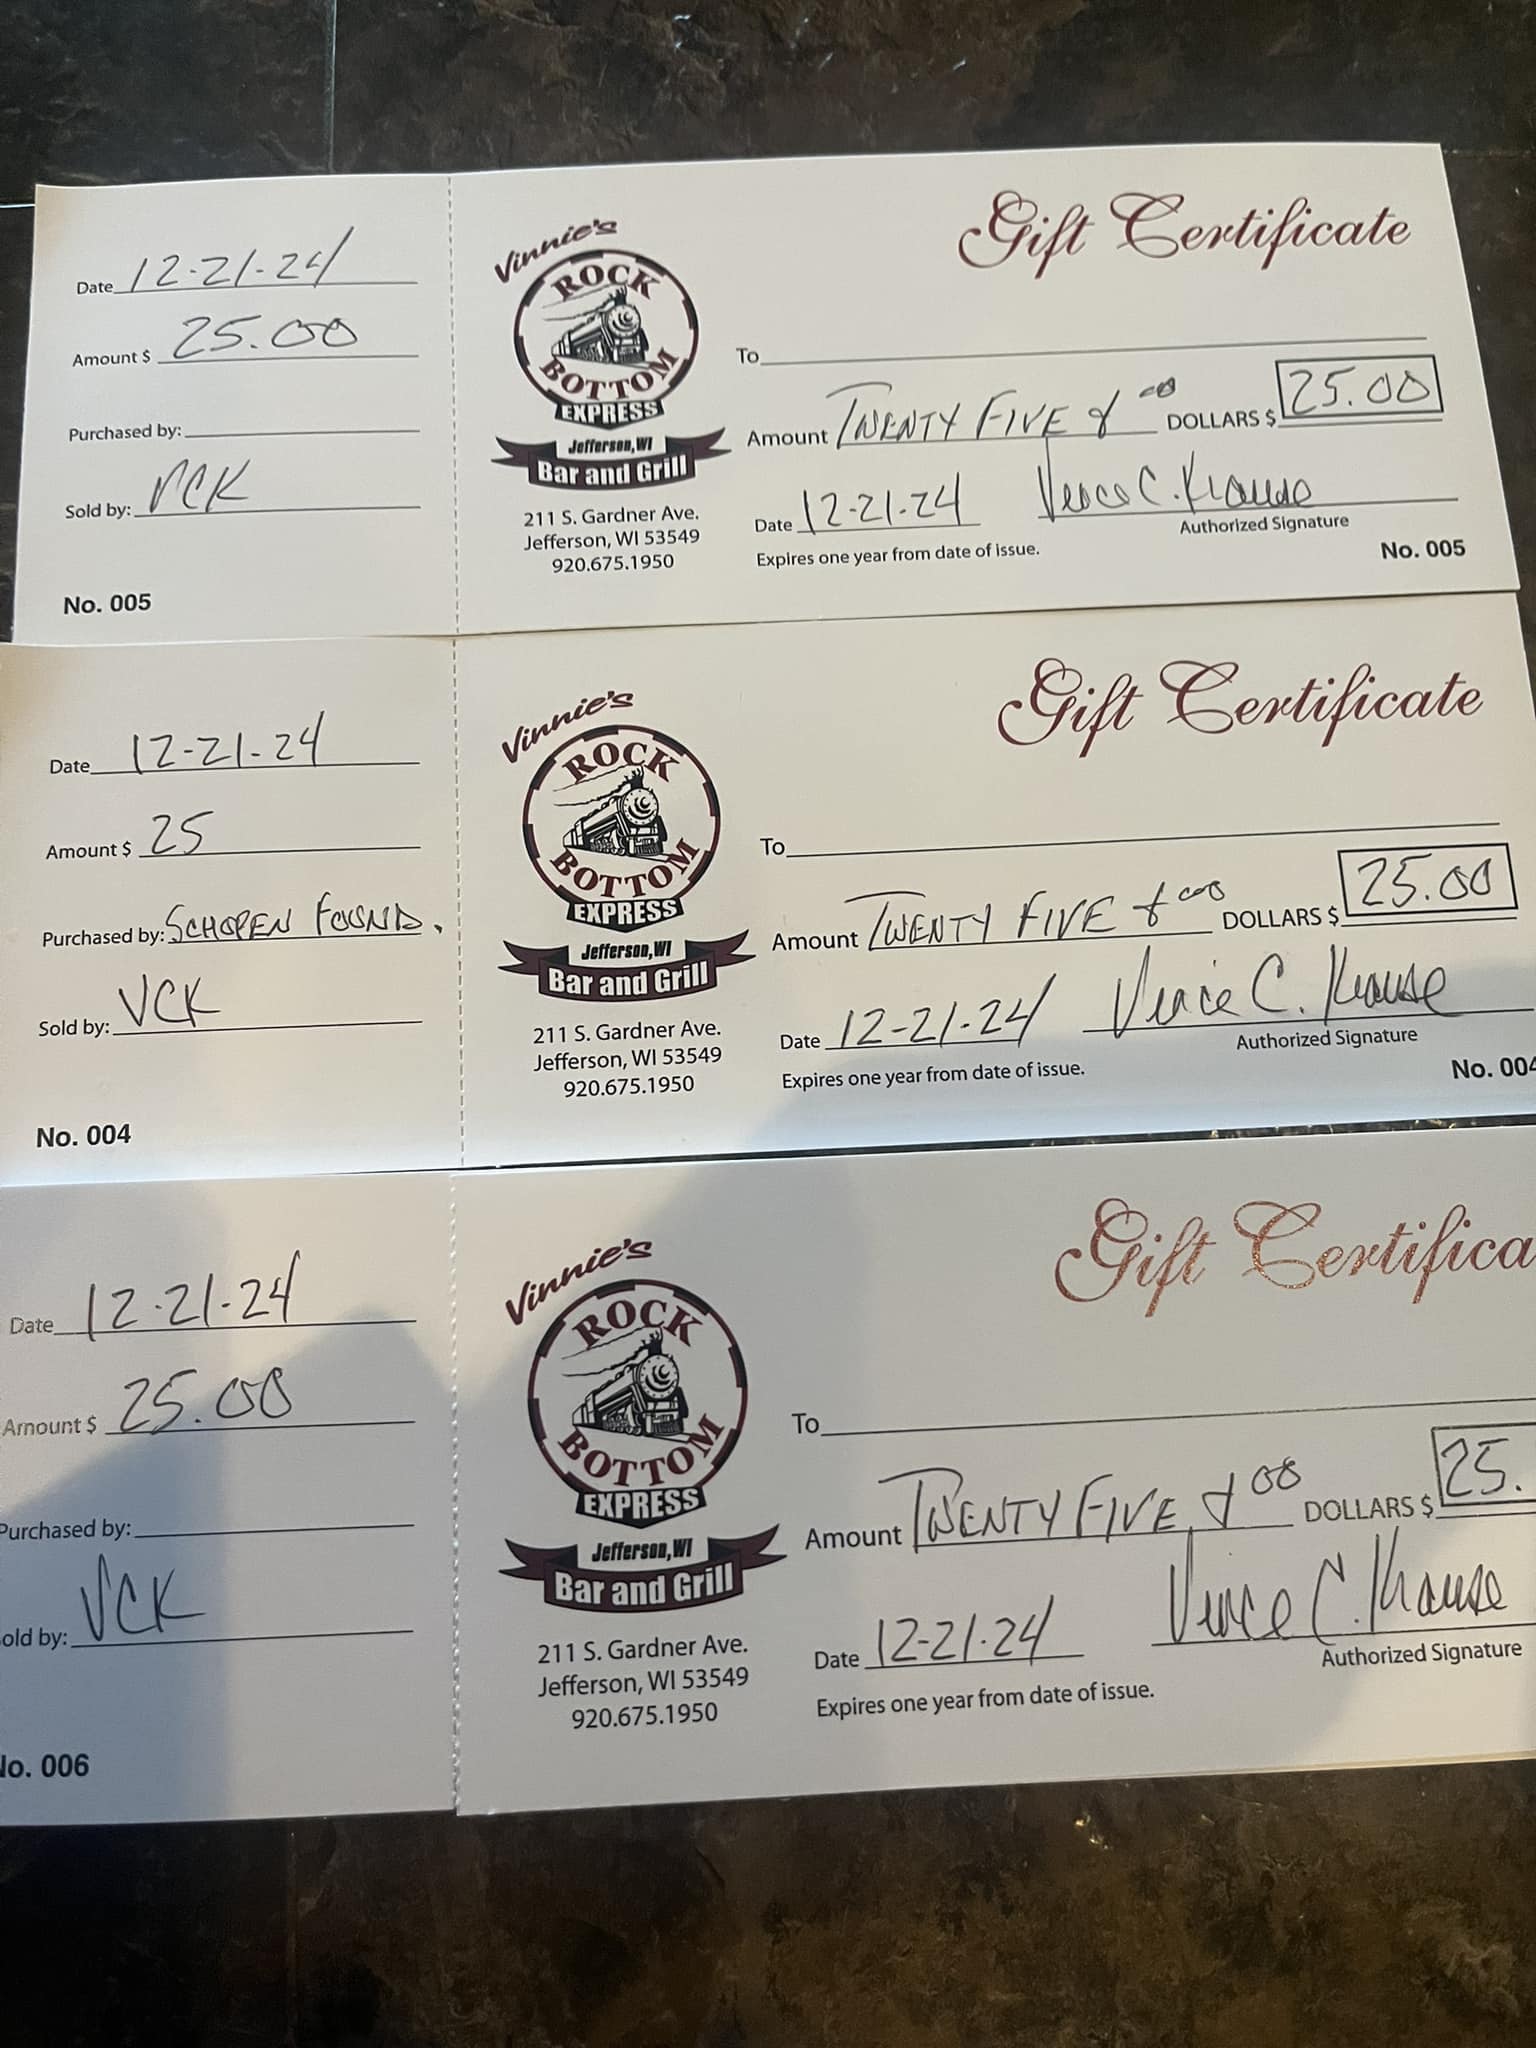 Date 12-21-24
Amount $ 25.00
Purchased by:
Sold by: VCK
No. 005
Vinnie's
ROCK
BOTTOM
EXPRESS
Jefferson, WI
Bar and Grill
211 S. Gardner Ave.
Jefferson, WI 53549
920.675.1950
Gift Certificate
To
Amount TWENTY FIVE & 00 DOLLARS $ 25.00
Date 12-21-24 Vince C. Krause
Authorized Signature
Expires one year from date of issue.
No. 005
Date 12-21-24
Amount $ 25
Purchased by: SCHOPEN FOUND.
Sold by: VCK
No. 004
Vinnie's
ROCK
BOTTOM
EXPRESS
Jefferson, WI
Bar and Grill
211 S. Gardner Ave.
Jefferson, WI 53549
920.675.1950
Gift Certificate
To
Amount TWENTY FIVE & 00 DOLLARS $ 25.00
Date 12-21-24 Vince C. Krause
Authorized Signature
Expires one year from date of issue.
No. 004
Date 12-21-24
Amount $ 25.00
Purchased by:
old by: VCK
No. 006
Vinnie's
ROCK
BOTTOM
EXPRESS
Jefferson, WI
Bar and Grill
211 S. Gardner Ave.
Jefferson, WI 53549
920.675.1950
Gift Certifica
To
Amount TWENTY FIVE & 00 DOLLARS $ 25.
Date 12-21-24 Vince C. Krause
Authorized Signature
Expires one year from date of issue.